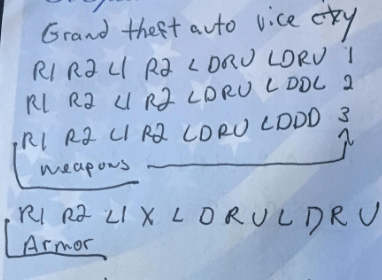 Grand theft auto vice city
R1 R2 L1 R2 L D R U L D R U 1
R1 R2 L1 R2 L D R U L D D L 2
R1 R2 L1 R2 L D R U L D D D 3
weapons
R1 R2 L1 X L D R U L D R U
Armor